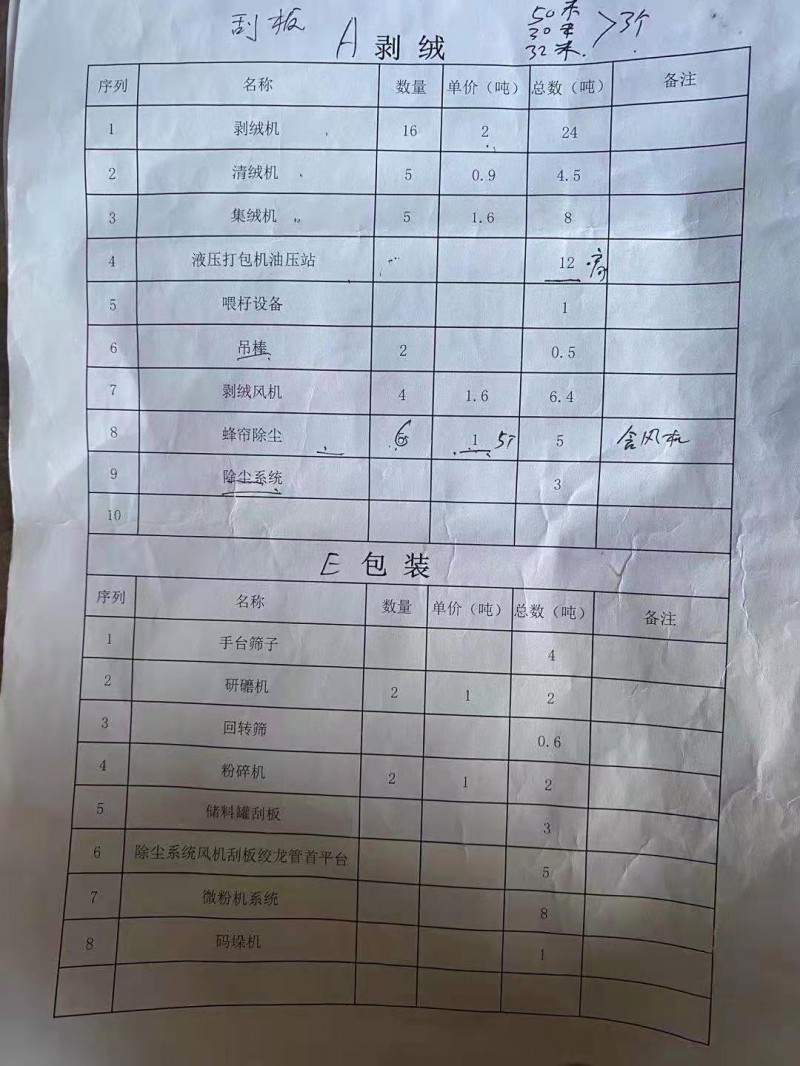 刮板
50米
30米 >3个
32米
A 剥绒
序列 名称 数量 单价（吨） 总数（吨） 备注
1 剥绒机 16 2 24
2 清绒机 5 0.9 4.5
3 集绒机 5 1.6 8
4 液压打包机油压站 12
5 喂籽设备 1
6 吊棒 2 0.5
7 剥绒风机 4 1.6 6.4
8 蜂帘除尘 6 1 5T 5 含风机
9 除尘系统 3
10
E 包装
序列 名称 数量 单价（吨） 总数（吨） 备注
1 手台筛子 4
2 研磨机 2 1 2
3 回转筛 0.6
4 粉碎机 2 1 2
5 储料罐刮板 3
6 除尘系统风机刮板绞龙管首平台 5
7 微粉机系统 8
8 码垛机 1